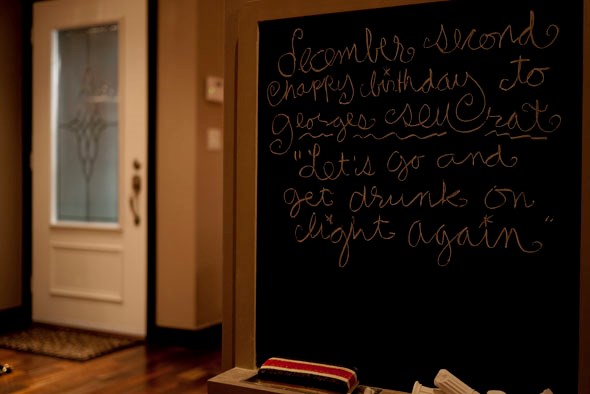 december second
happy birthday to
georges seurat
"Let's go and
get drunk on
light again"